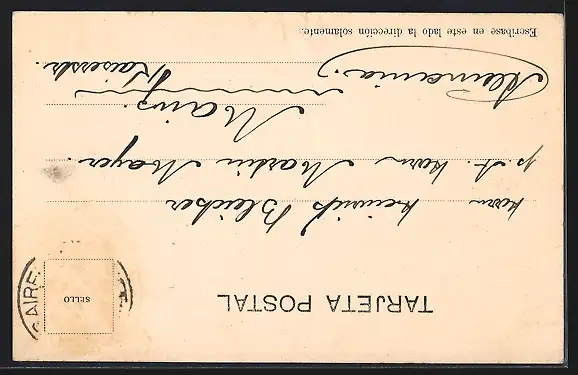 TARJETA POSTAL
SELLO
AIRE
Herrn Heinrich Bleicher
p. A. Herrn Martin Mayer.
Mainz.
Kaiserstr.
Alemania.
Escríbase en este lado la dirección solamente.